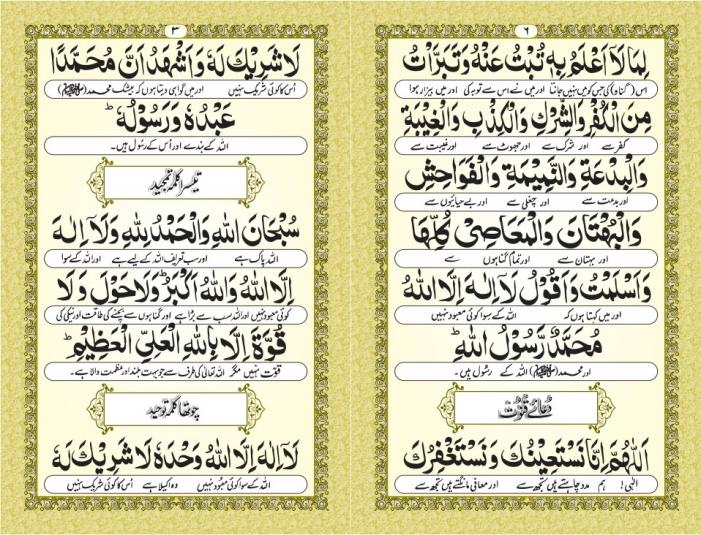 ٦
لِمَا لَآ اَعْلَمُ بِهٖ تُبْتُ عَنْهُ وَتَبَرَّاْتُ
اس (گناہ) کی جس کو میں نہیں جانتا اور میں نے اس سے توبہ کی اور میں بیزار ہوا
مِنَ الْكُفْرِ وَالشِّرْكِ وَالْكِذْبِ وَالْغِيْبَةِ
کفر سے اور شرک سے اور جھوٹ سے اور غیبت سے
وَالْبِدْعَةِ وَالنَّمِيْمَةِ وَالْفَوَاحِشِ
اور بدعت سے اور چغلی سے اور بے حیائیوں سے
وَالْبُهْتَانِ وَالْمَعَاصِيْ كُلِّهَا
اور بہتان سے اور تمام گناہوں سے
وَاَسْلَمْتُ وَاَقُوْلُ لَآ اِلٰهَ اِلَّا اللهُ
اور میں کہتا ہوں کہ اللہ کے سوا کوئی معبود نہیں
مُحَمَّدٌ رَّسُوْلُ اللهِ ؕ
اور محمد (ﷺ) اللہ کے رسول ہیں۔
دُعائے قُنُوت
اَللّٰهُمَّ اِنَّا نَسْتَعِيْنُكَ وَنَسْتَغْفِرُكَ
الٰہی! ہم مدد چاہتے ہیں تجھ سے اور معافی مانگتے ہیں تجھ سے
٣
لَا شَرِيْكَ لَهٗ وَاَشْهَدُ اَنَّ مُحَمَّدًا
اُس کا کوئی شریک نہیں اور میں گواہی دیتا ہوں کہ بیشک محمد (ﷺ)
عَبْدُهٗ وَرَسُوْلُهٗ ؕ
اللہ کے بندے اور اُس کے رسول ہیں۔
تیسرا کلمہ تمجید
سُبْحَانَ اللهِ وَالْحَمْدُ لِلّٰهِ وَلَآ اِلٰهَ
اللہ پاک ہے اور سب تعریف اللہ کے لیے ہے اور اللہ کے سوا
اِلَّا اللهُ وَاللهُ اَكْبَرُ ؕ وَلَا حَوْلَ وَلَا
کوئی معبود نہیں اور اللہ سب سے بڑا ہے اور گناہوں سے بچنے کی طاقت اور نیکی کی
قُوَّةَ اِلَّا بِاللهِ الْعَلِيِّ الْعَظِيْمِ ؕ
قوّت نہیں مگر اللہ تعالیٰ کی طرف سے جو بہت بلند اور عظمت والا ہے۔
چوتھا کلمہ توحید
لَآ اِلٰهَ اِلَّا اللهُ وَحْدَهٗ لَا شَرِيْكَ لَهٗ
اللہ کے سوا کوئی معبُود نہیں وہ اکیلا ہے اُس کا کوئی شریک نہیں